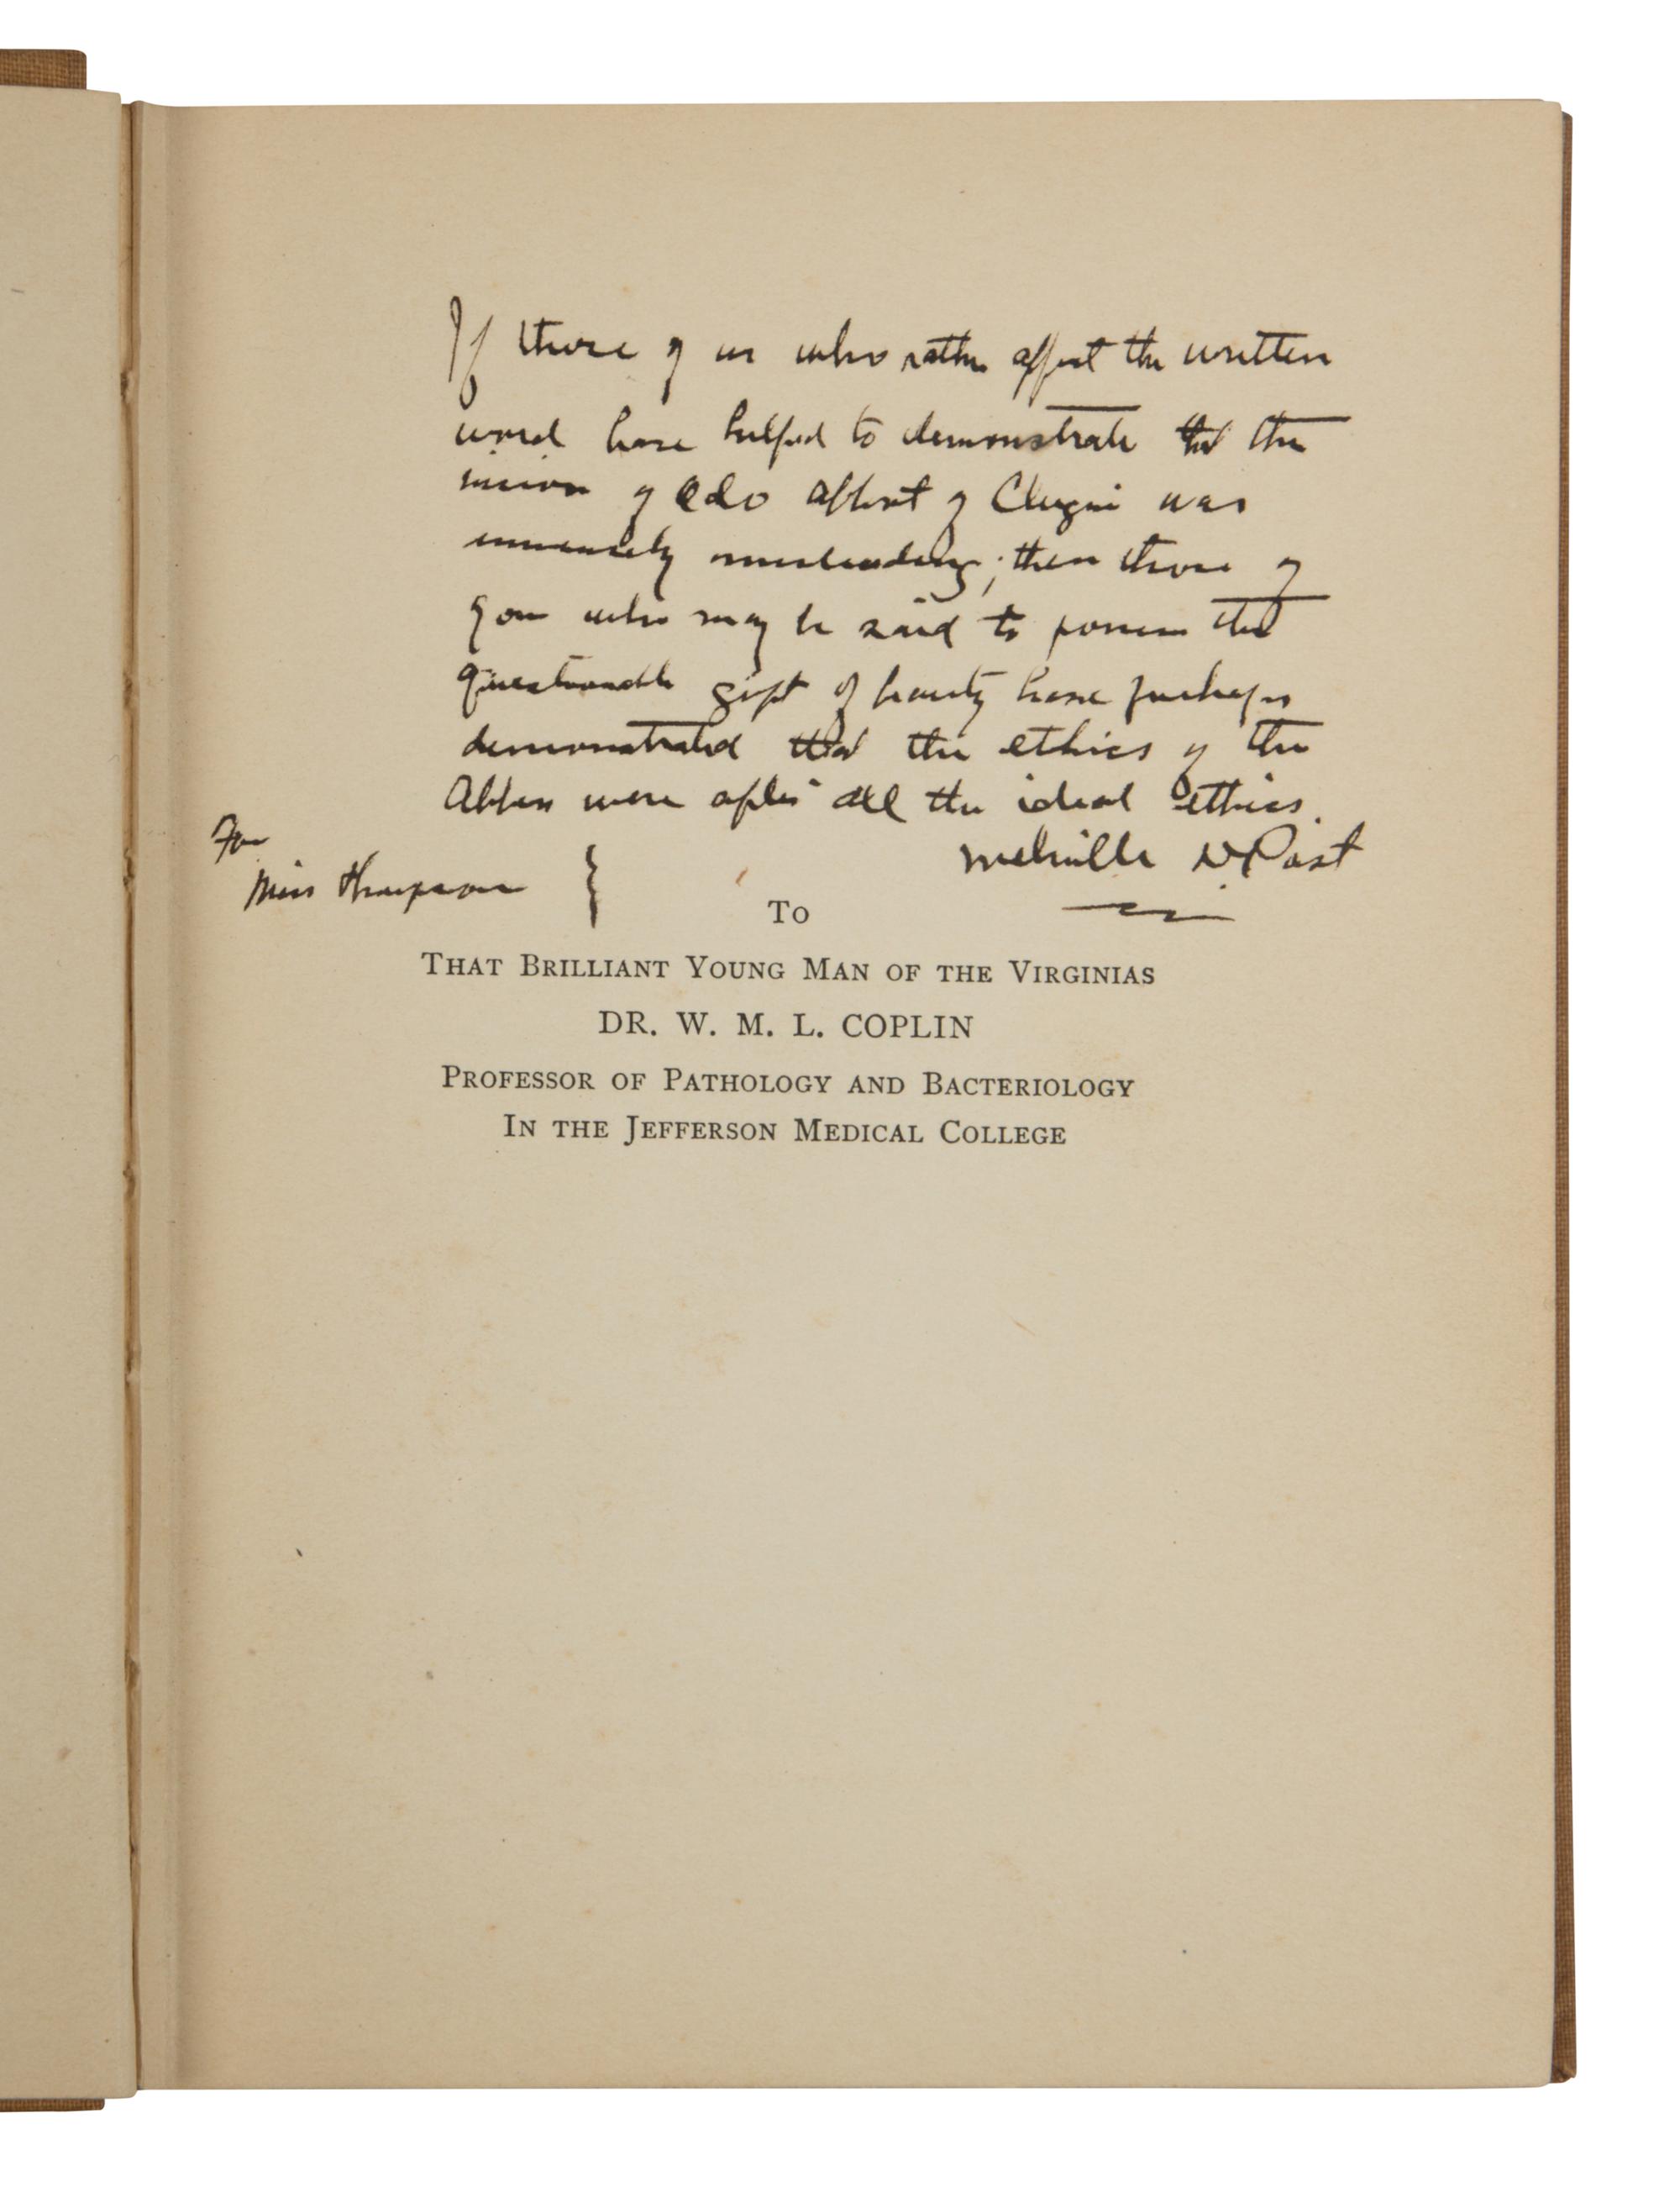 If those of us who rather affect the written
word have helped to demonstrate that the
vision of Odo Abbot of Clugni was
immensely misleading; then those of
you who may be said to possess the
questionable gift of beauty have perhaps
demonstrated that the ethics of the
Abbess were after all the ideal ethics.
Melville D Post
For
Miss Thompson }
TO
THAT BRILLIANT YOUNG MAN OF THE VIRGINIAS
DR. W. M. L. COPLIN
PROFESSOR OF PATHOLOGY AND BACTERIOLOGY
IN THE JEFFERSON MEDICAL COLLEGE